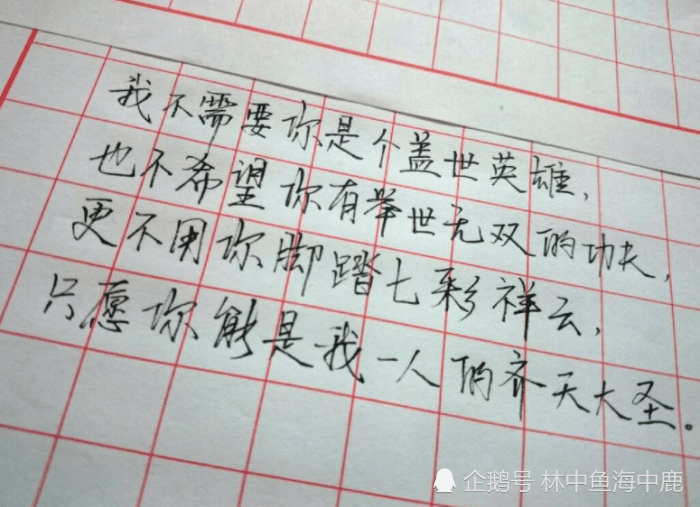 我不需要你是个盖世英雄，
也不希望你有举世无双的功夫，
更不用你脚踏七彩祥云，
只愿你能是我一人的齐天大圣。
企鹅号 林中鱼海中鹿